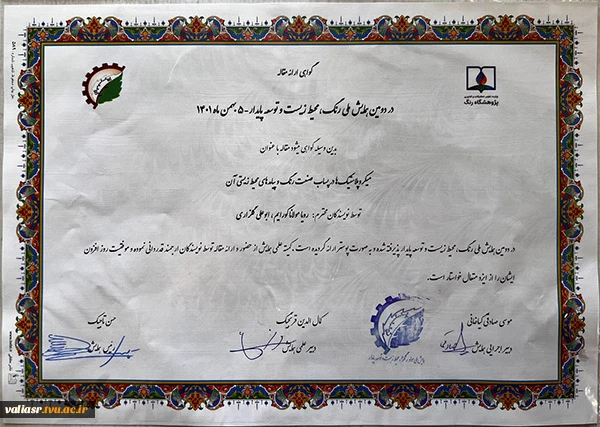 گواهی ارائه مقاله
پژوهشگاه رنگ
در دومین همایش ملی رنگ، محیط زیست و توسعه پایدار - ۵ بهمن ماه ۱۴۰۱
بدین وسیله گواهی میشود مقاله با عنوان
میکروپلاستیک‌ها در پساب صنعت رنگ و پیامدهای محیط زیستی آن
توسط نویسندگان محترم: رویا مولانا کورایم، ابوعلی گلزاری
در دومین همایش ملی رنگ، محیط زیست و توسعه پایدار پذیرفته شده و به صورت پوستر ارائه گردیده است. کمیته علمی همایش از حضور و ارائه مقاله توسط نویسندگان ارجمند قدردانی نموده و موفقیت روز افزون
ایشان را از ایزد متعال خواستار است.
موسی صادقی کیاخانی
دبیر اجرایی همایش
کمال الدین قرنجیگ
دبیر علمی همایش
حسن تاجیک
رئیس همایش
valiasr.tvu.ac.ir